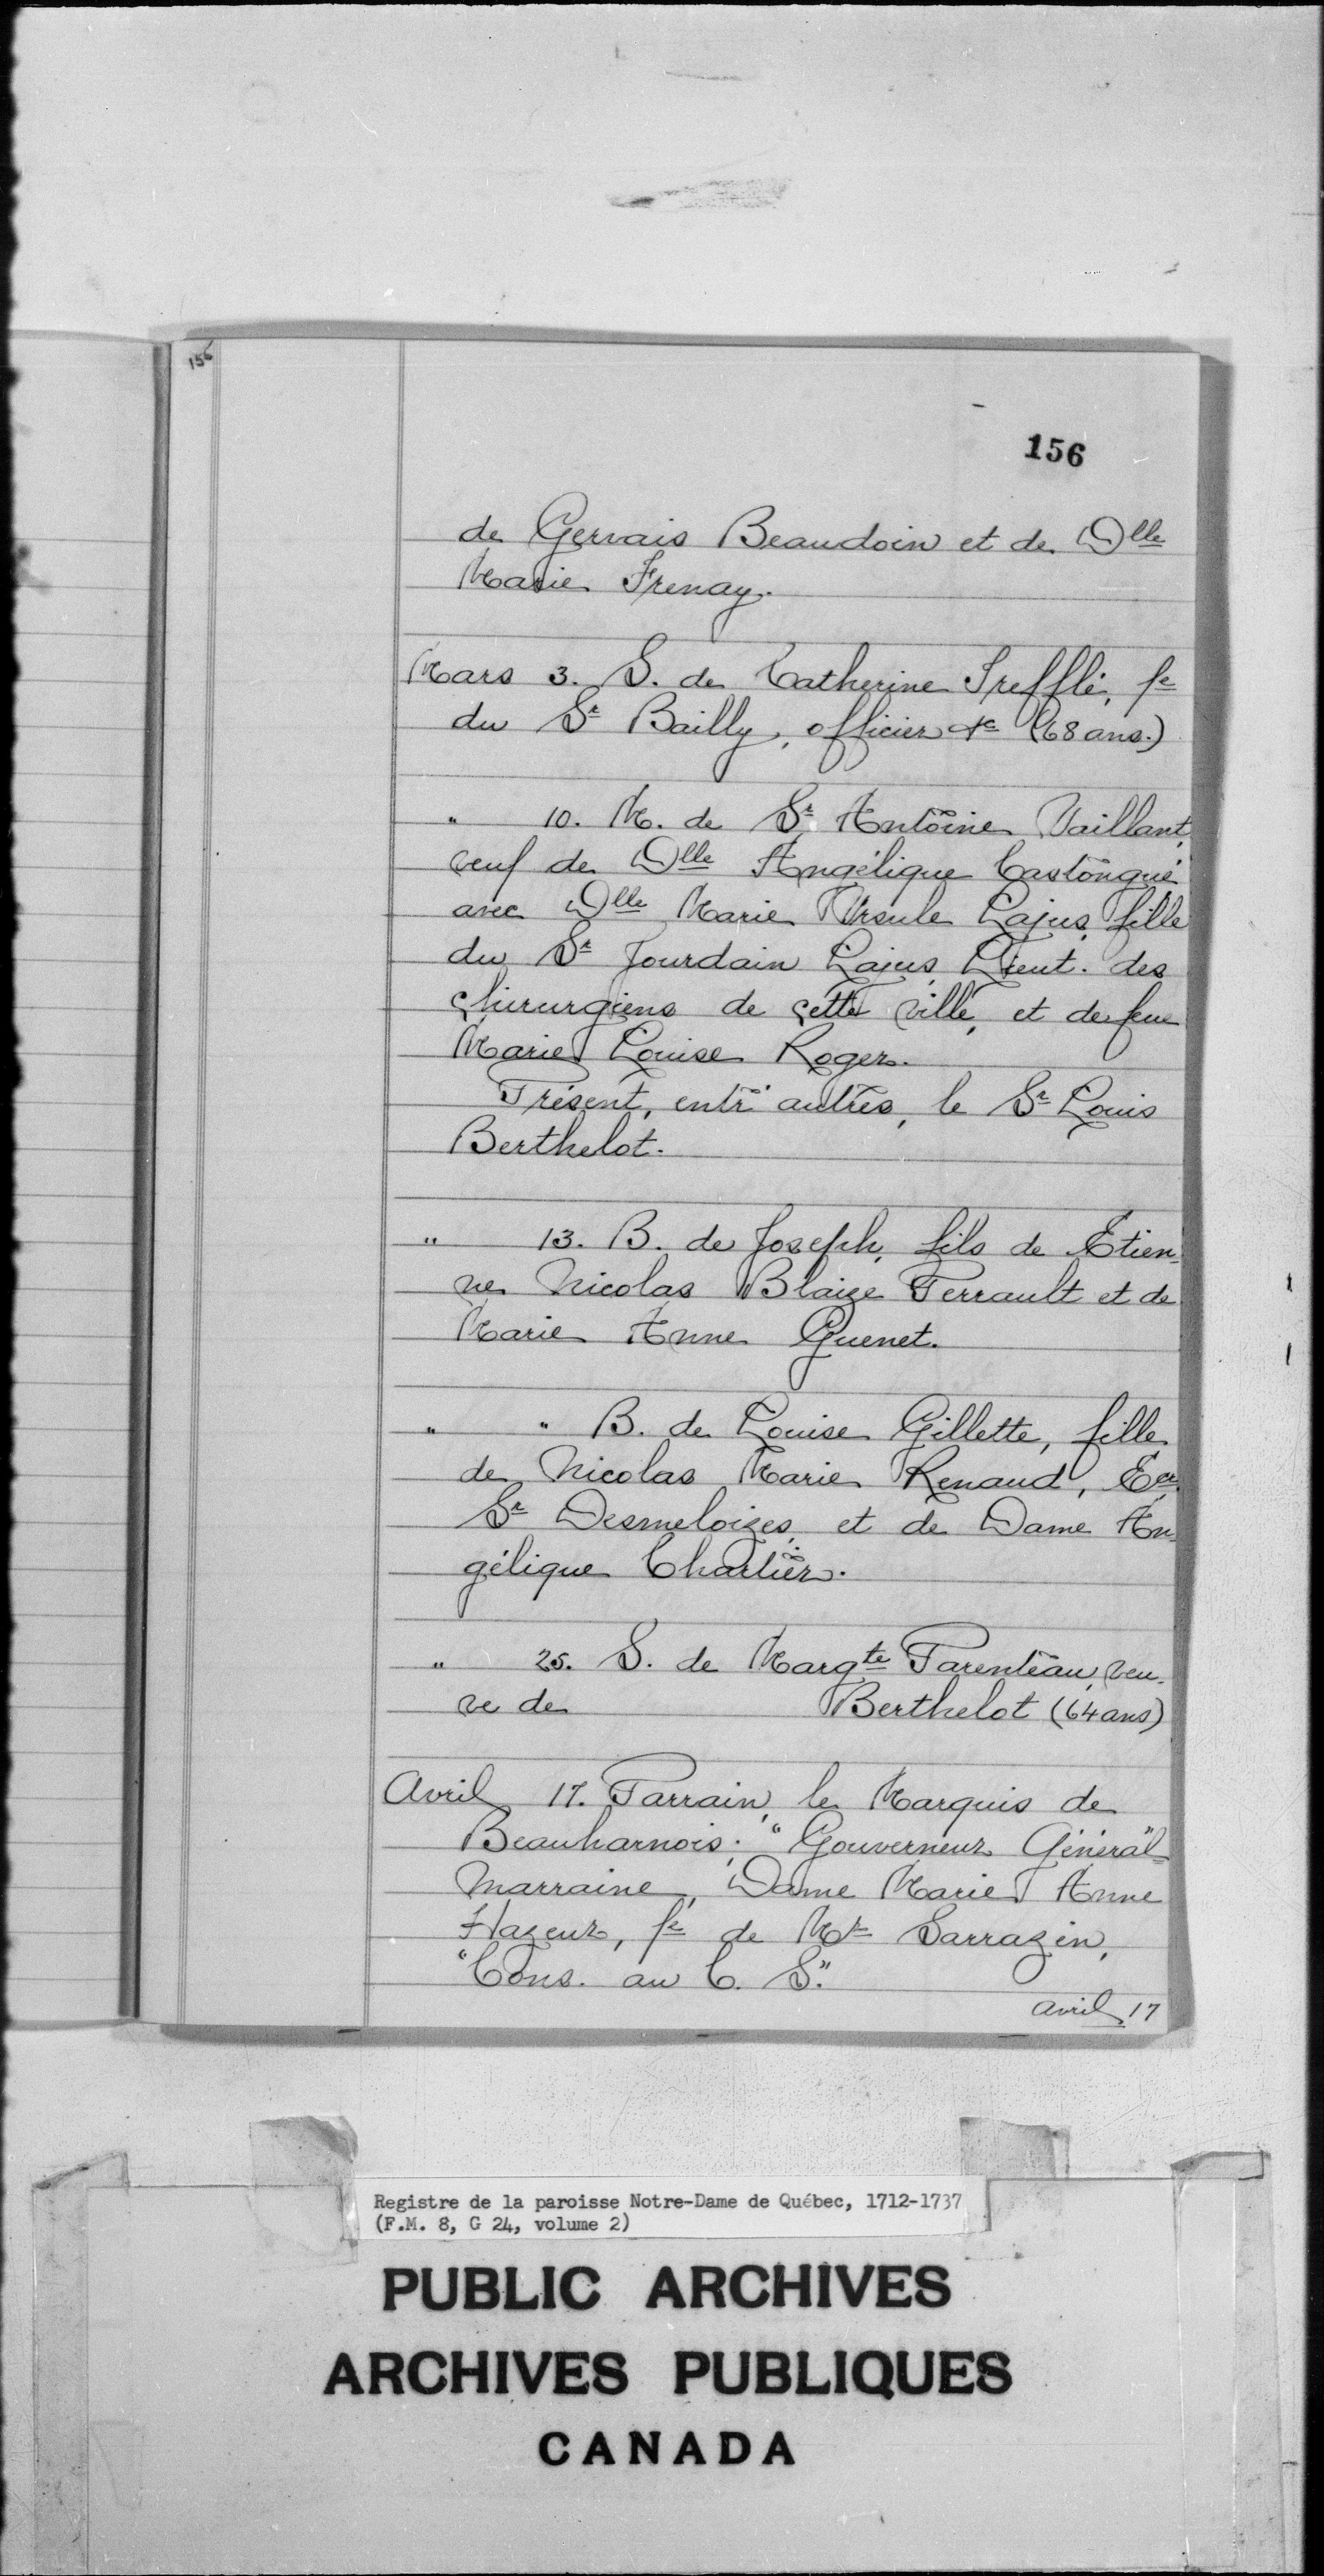 156
156
de Gervais Beaudoin et de Dlle
Marie Frenay.
Mars 3. S. de Catherine Trefflé, fe
du Sr Bailly, officier &c (68 ans.)
" 10. M. de Sr Antoine Vaillant,
veuf de Dlle Angélique Castongué
avec Dlle Marie Ursule Lajus, fille
du Sr Jourdain Lajus, Lieut. des
chirurgiens de cette ville, et de feue
Marie Louise Roger.
Présent, entr'autres, le Sr Louis
Berthelot.
" 13. B. de Joseph, fils de Etien-
ne Nicolas Blaize Perrault et de
Marie Anne Guenet.
" " B. de Louise Gillette, fille
de Nicolas Marie Renaud, Ecr,
Sr Desmeloizes, et de Dame An-
gélique Chartier.
" 25. S. de Margte Parenteau, veu-
ve de Berthelot (64 ans)
Avril 17. Parrain, le Marquis de
Beauharnois; "Gouverneur Général"
Marraine, Dame Marie Anne
Hazeur, fe de Mr Sarrazin,
"Cons. au C. S."
Avril 17
Registre de la paroisse Notre-Dame de Québec, 1712-1737
(F.M. 8, G 24, volume 2)
PUBLIC ARCHIVES
ARCHIVES PUBLIQUES
CANADA